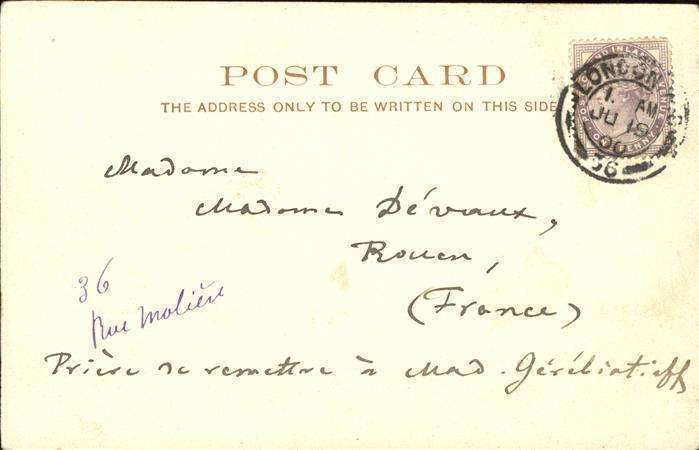 POST CARD
THE ADDRESS ONLY TO BE WRITTEN ON THIS SIDE
LONDON
1. AM
JU 19
00
36
Madame
Madame Dévaux,
Rouen,
(France)
36
Rue Molière
Prière de remettre à Mad. Gérébiatieff